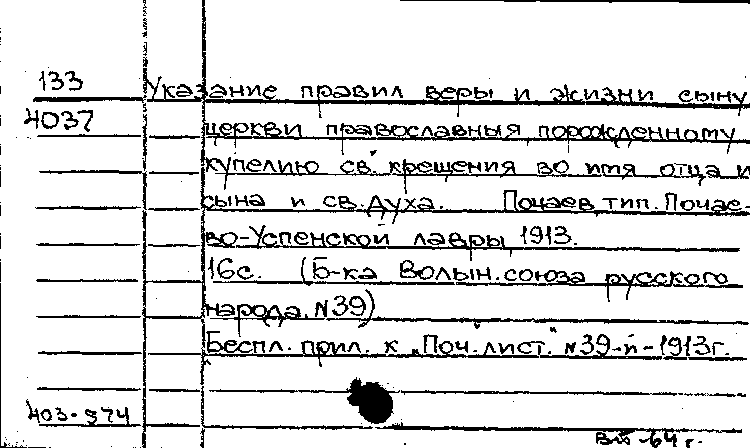 133 Указание правил веры и жизни сыну
4037 церкви православныя, порожденному
купелию св. крещения во имя отца и
сына и св. духа. Почаев, тип. Почае-
во-Успенской лавры, 1913.
16с. (Б-ка Волын. союза русского
народа. №39)
Беспл. прил. к „Поч. лист." №39-й-1913г.
403-974
-64 г.